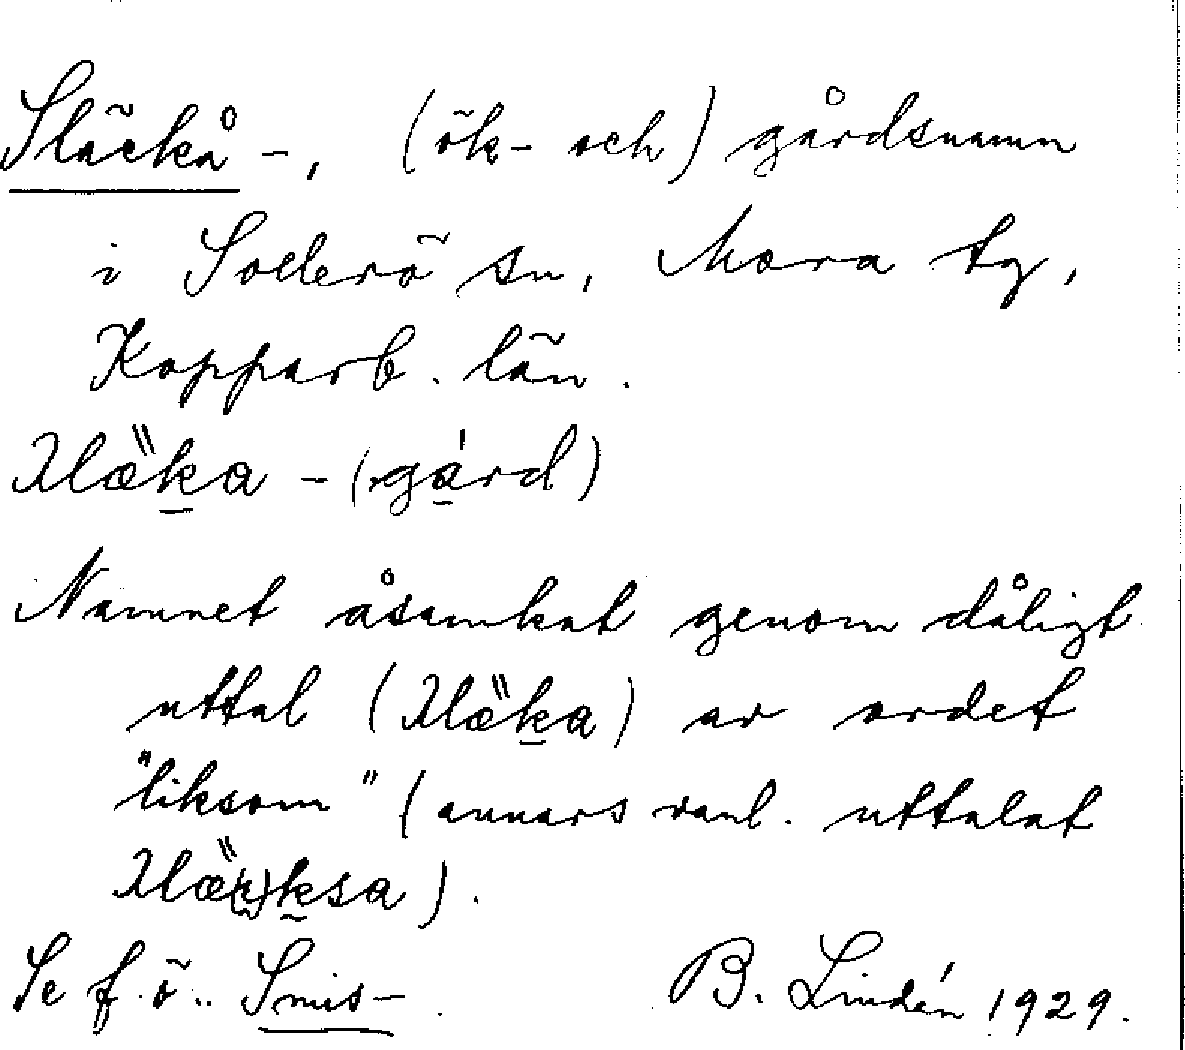 Släckå -, (ök- och) gårdsnamn
i Sollerö sn, Mora tg,
Kopparb. län.
-(gård)
Namnet åsamkat genom dåligt
uttal () av ordet
"liksom" (annars vanl. uttalat
).
Se f.ö. Smis- B. Lindén 1929.